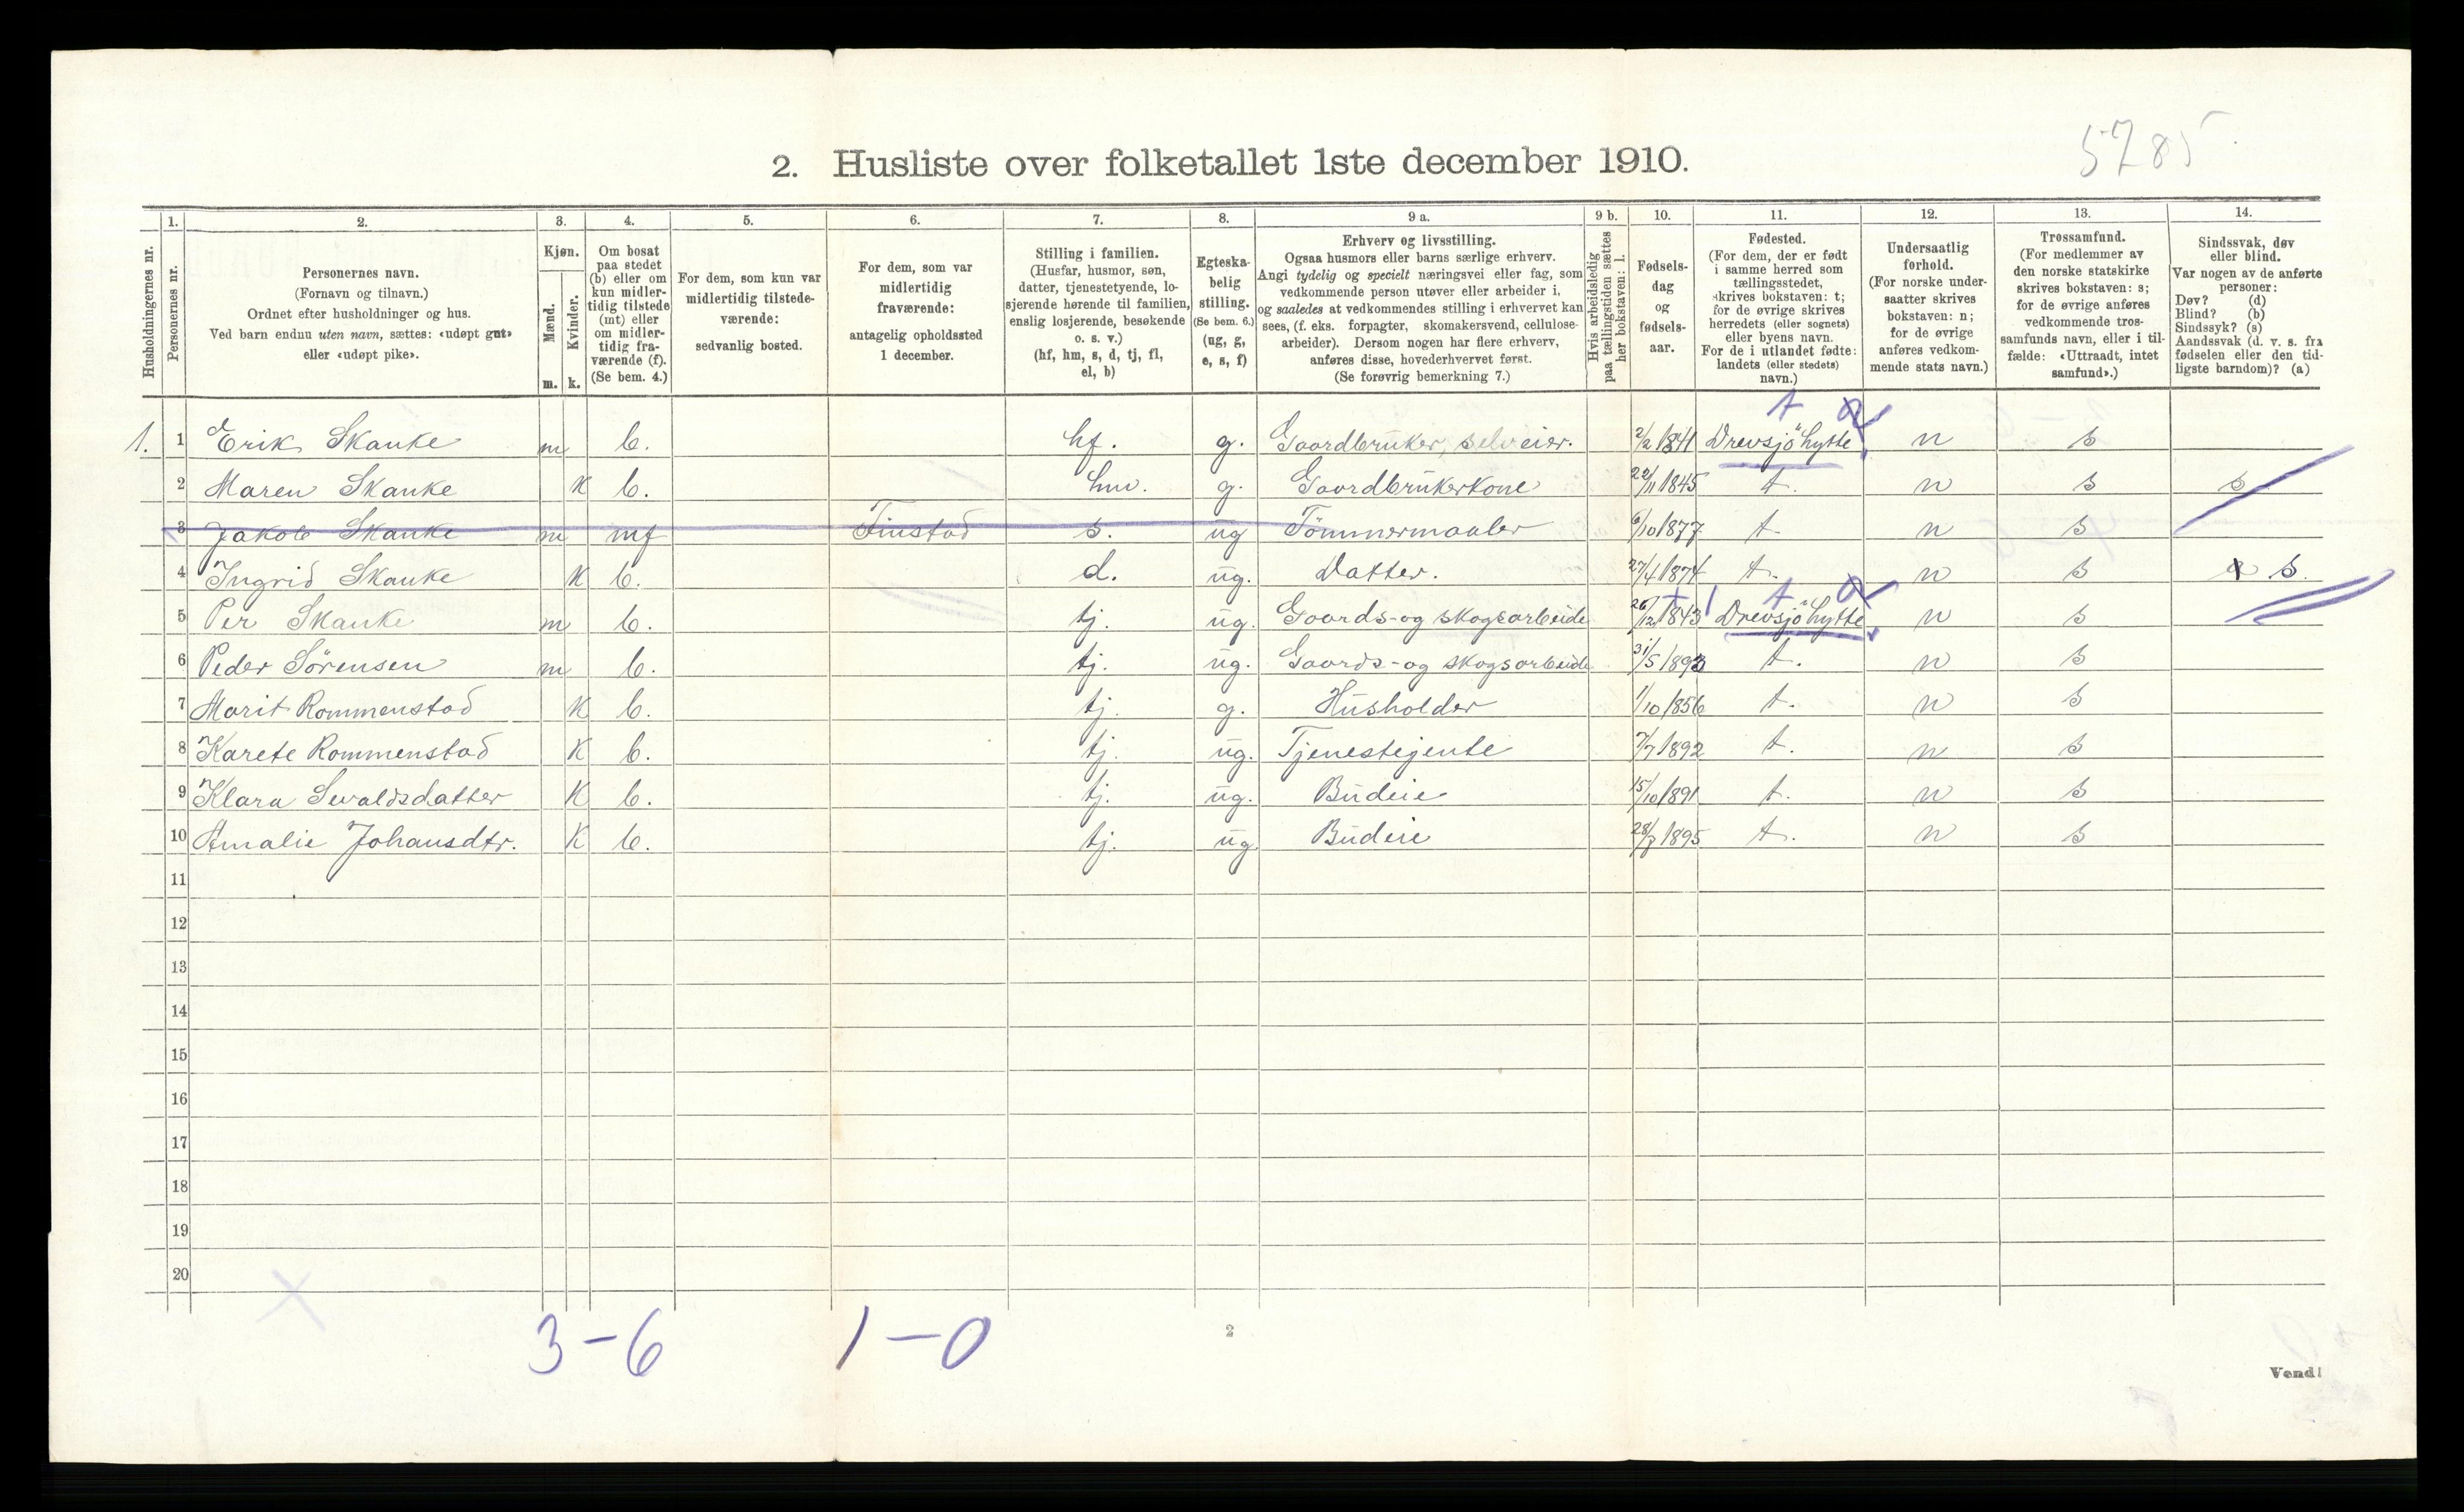 5785
2. Husliste over folketallet 1ste december 1910.
Husholdningernes nr.
1. Personernes nr.
2. Personernes navn.
(Fornavn og tilnavn.)
Ordnet efter husholdninger og hus.
Ved barn endnu uten navn, sættes: «udøpt gut»
eller «udøpt pike».
3. Kjøn.
Mænd. Kvinder.
m. k.
4. Om bosat
paa stedet
(b) eller om
kun midler-
tidig tilstede
(mt) eller
om midler-
tidig fra-
værende (f).
(Se bem. 4.)
5. For dem, som kun var
midlertidig tilstede-
værende:
sedvanlig bosted.
6. For dem, som var
midlertidig
fraværende:
antagelig opholdssted
1 december.
7. Stilling i familien.
(Husfar, husmor, søn,
datter, tjenestetyende, lo-
sjerende hørende til familien,
enslig losjerende, besøkende
o. s. v.)
(hf, hm, s, d, tj, fl,
el, b)
8. Egteska-
belig
stilling.
(Se bem. 6.)
(ug, g,
e, s, f)
9 a. Erhverv og livsstilling.
Ogsaa husmors eller barns særlige erhverv.
Angi tydelig og specielt næringsvei eller fag, som
vedkommende person utøver eller arbeider i,
og saaledes at vedkommendes stilling i erhvervet kan
sees, (f. eks. forpagter, skomakersvend, cellulose-
arbeider). Dersom nogen har flere erhverv,
anføres disse, hovederhvervet først.
(Se forøvrig bemerkning 7.)
9 b. Hvis arbeidsledig
paa tællingstiden sættes
her bokstaven: l.
10. Fødsels-
dag
og
fødsels-
aar.
11. Fødested.
(For dem, der er født
i samme herred som
tællingsstedet,
skrives bokstaven: t;
for de øvrige skrives
herredets (eller sognets)
eller byens navn.
For de i utlandet fødte:
landets (eller stedets)
navn.)
12. Undersaatlig
forhold.
(For norske under-
saatter skrives
bokstaven: n;
for de øvrige
anføres vedkom-
mende stats navn.)
13. Trossamfund.
(For medlemmer av
den norske statskirke
skrives bokstaven: s;
for de øvrige anføres
vedkommende tros-
samfunds navn, eller i til-
fælde: «Uttraadt, intet
samfund».)
14. Sindssvak, døv
eller blind.
Var nogen av de anførte
personer:
Døv? (d)
Blind? (b)
Sindssyk? (s)
Aandssvak (d. v. s. fra
fødselen eller den tid-
ligste barndom)? (a)
t
1. 1 Erik Skanke m b. hf. g. Gaardbruker, selveier. 2/2 1841 Drevsjöhytte n s
2 Maren Skanke K b. hm. g. Gaardbrukerkone 22/11 1845 t. n s s
3 Jakob Skanke m mf Finstad s. ug Tömmermaaler 6/10 1877 t. n s
4 Ingrid Skanke K b. d. ug. Datter. 27/4 1874 t. n s s.
t
5 Per Skanke m b. tj. ug. Gaards- og skogsarbeide 26/12 1843 Drevsjöhytte n s
6 Peder Sörensen m b. tj. ug. Gaards- og skogsarbeide 31/5 1893 t. n s
7 Marit Rommenstad K b. tj. g. Husholder 1/10 1856 t. n s
8 Karete Rommenstad K b. tj. ug. Tjenestejente 7/7 1892 t. n s
9 Klara Sevaldsdatter K b. tj. ug. Budeie 15/10 1891 t. n s
10 Amalie Johansdtr. K b. tj. ug. Budeie 1895 t. n s
11
12
13
14
15
16
17
18
19
20
3 – 6 1 – 0
2
Vend!